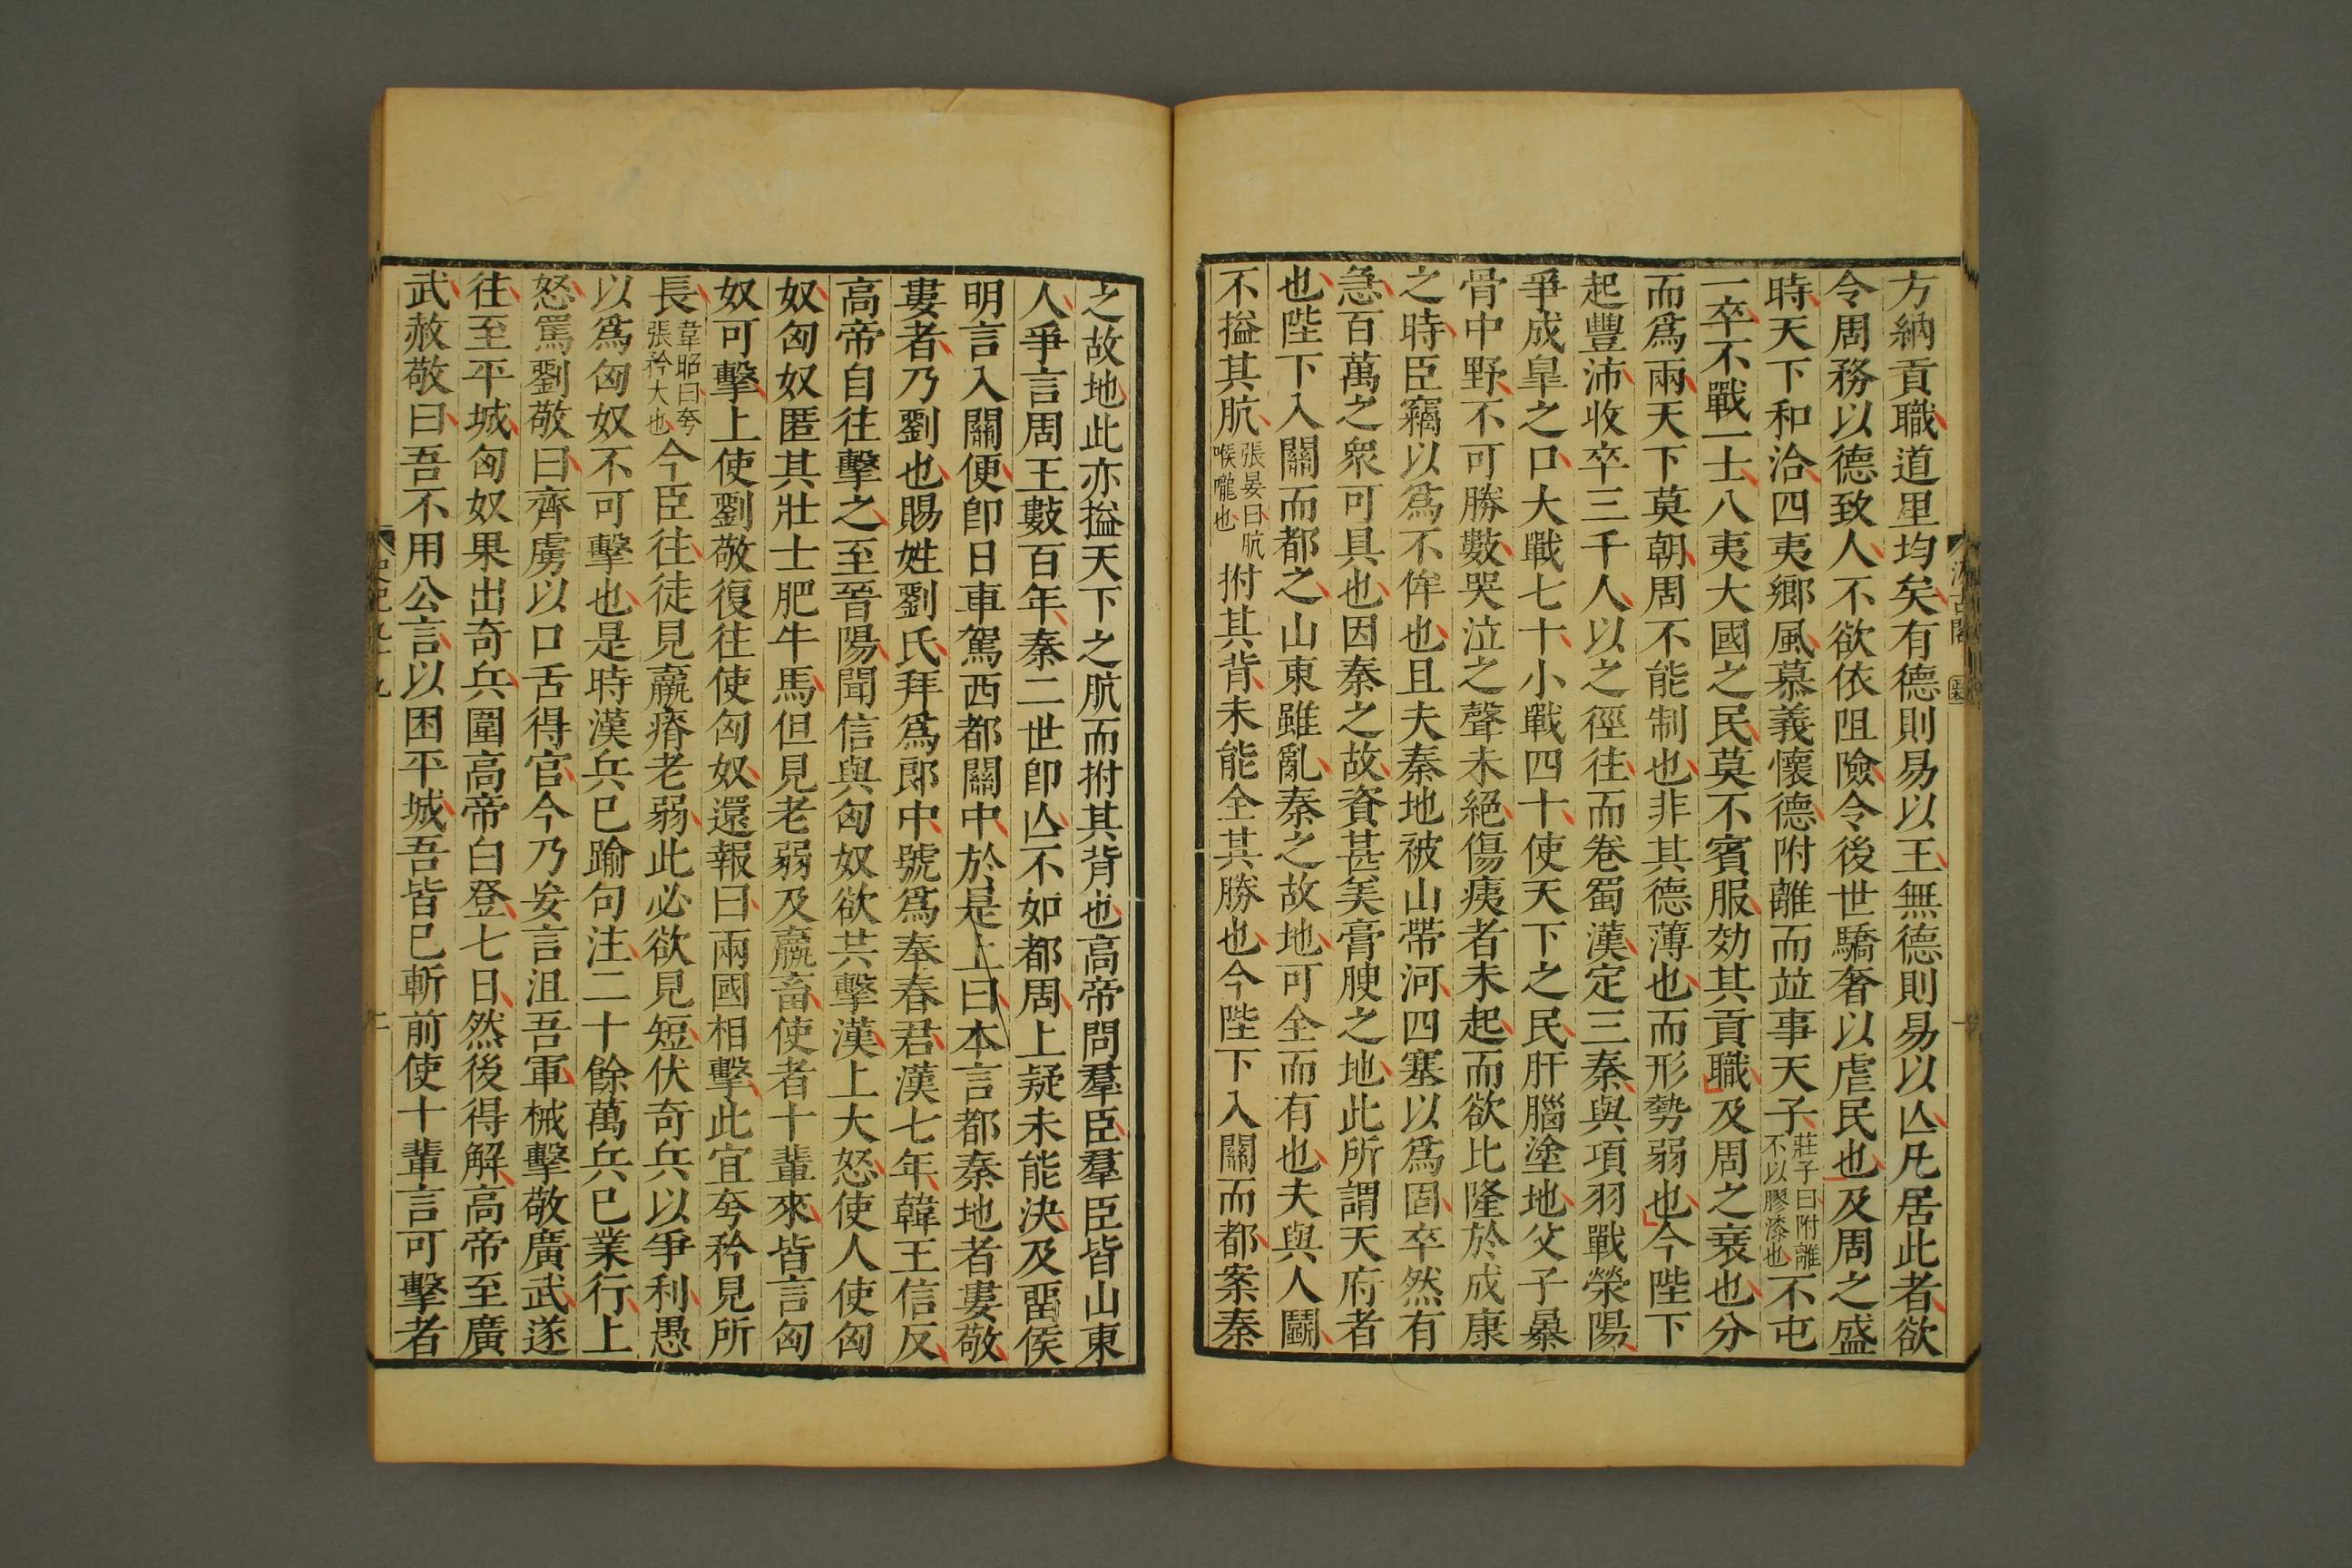 方納貢職道里均矣有德則易以王無德則易以亾凡居此者欲
令周務以德致人不欲依阻險令後世驕奢以虐民也及周之盛
時天下和洽四夷鄉風慕義懷德附離而竝事天子莊子曰附離不以膠漆也不屯
一卒不戰一士八夷大國之民莫不賓服効其貢職及周之衰也分
而爲兩天下莫朝周不能制也非其德薄也而形勢弱也今陛下
起豐沛收卒三千人以之徑往而卷蜀漢定三秦與項羽戰滎陽
爭成皐之口大戰七十小戰四十使天下之民肝腦塗地父子暴
骨中野不可勝數哭泣之聲未絕傷痍者未起而欲比隆於成康
之時臣竊以爲不侔也且夫秦地被山帶河四塞以爲固卒然有
急百萬之衆可具也因秦之故資甚美膏腴之地此所謂天府者
也陛下入關而都之山東雖亂秦之故地可全而有也夫與人鬬
不搤其肮張晏曰肮喉嚨也拊其背未能全其勝也今陛下入關而都案秦
之故地此亦搤天下之肮而拊其背也高帝問羣臣羣臣皆山東
人爭言周王數百年秦二世卽亾不如都周上疑未能決及畱侯
明言入關便卽日車駕西都關中於是上曰本言都秦地者婁敬
婁者乃劉也賜姓劉氏拜爲郎中號爲奉春君漢七年韓王信反
高帝自往擊之至晉陽聞信與匈奴欲共擊漢上大怒使人使匈
奴匈奴匿其壯士肥牛馬但見老弱及羸畜使者十輩來皆言匈
奴可擊上使劉敬復往使匈奴還報曰兩國相擊此宜夸矜見所
長韋昭曰夸張矜大也今臣往徒見羸瘠老弱此必欲見短伏奇兵以爭利愚
以爲匈奴不可擊也是時漢兵已踰句注二十餘萬兵已業行上
怒罵劉敬曰齊虜以口舌得官今乃妄言沮吾軍械擊敬廣武遂
往至平城匈奴果出奇兵圍高帝白登七日然後得解高帝至廣
武赦敬曰吾不用公言以困平城吾皆已斬前使十輩言可擊者